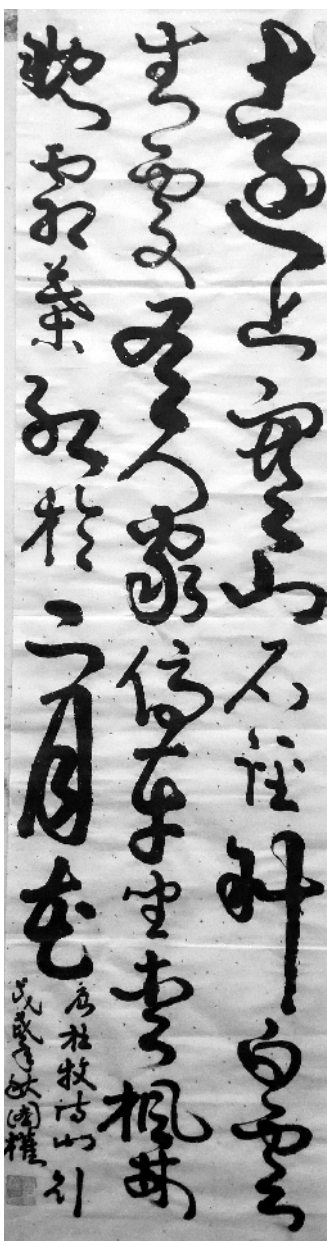 遠上寒山石徑斜白雲
生處有人家停車坐愛楓林
晚霜葉紅於二月花
唐杜牧诗山行
戊戌年秋國權